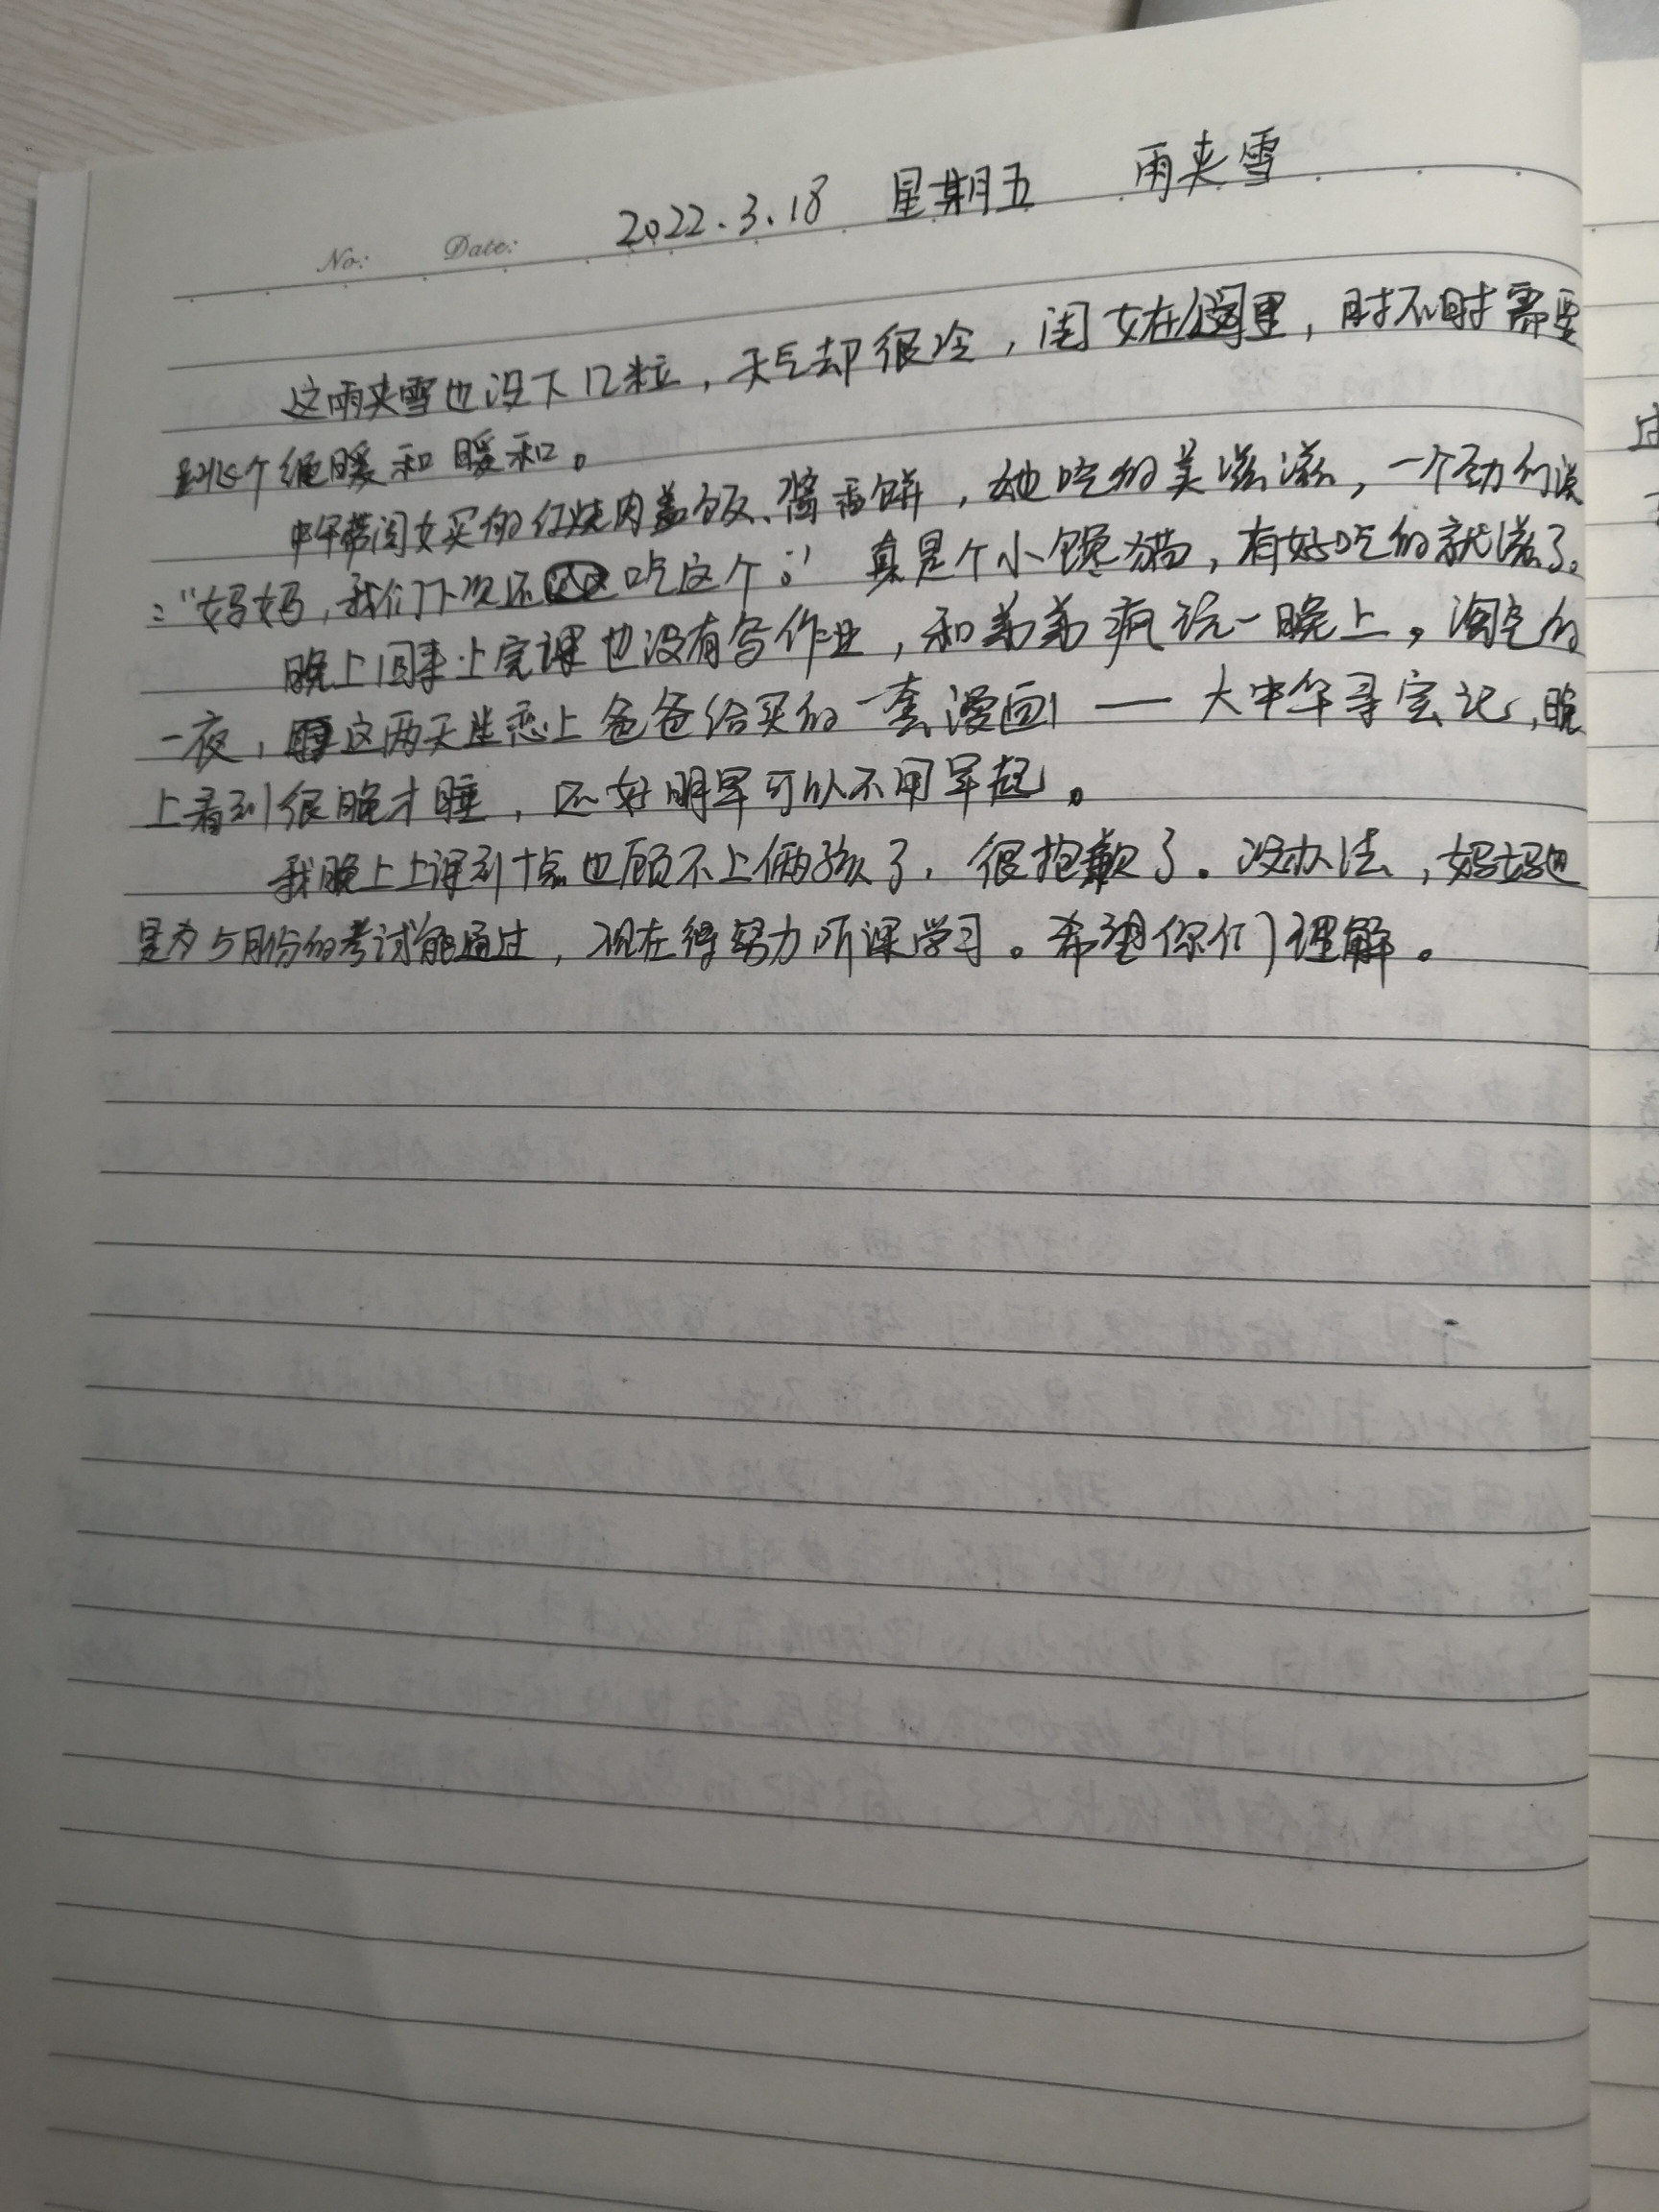 2022.3.18 星期五 雨夹雪
No: Date:
这雨夹雪也没下几粒，天气却很冷，闺女在阁里，时不时需要
跳个绳暖和暖和。
中午带闺女买的红烧肉盖饭、酱香饼，她吃的美滋滋，一个劲的说
：“妈妈，我们下次还吃这个。” 真是个小馋猫，有好吃的就滋了。
晚上回来上完课也没有写作业，和弟弟疯玩一晚上，淘气的
一夜，这两天迷恋上爸爸给买的一套漫画 — 大中华寻宝记，晚
上看到很晚才睡，还好明早可以不用早起。
我晚上上课到十点也顾不上俩孩了，很抱歉了。没办法，妈妈也
是为5月份的考试能通过，现在得努力听课学习。希望你们理解。